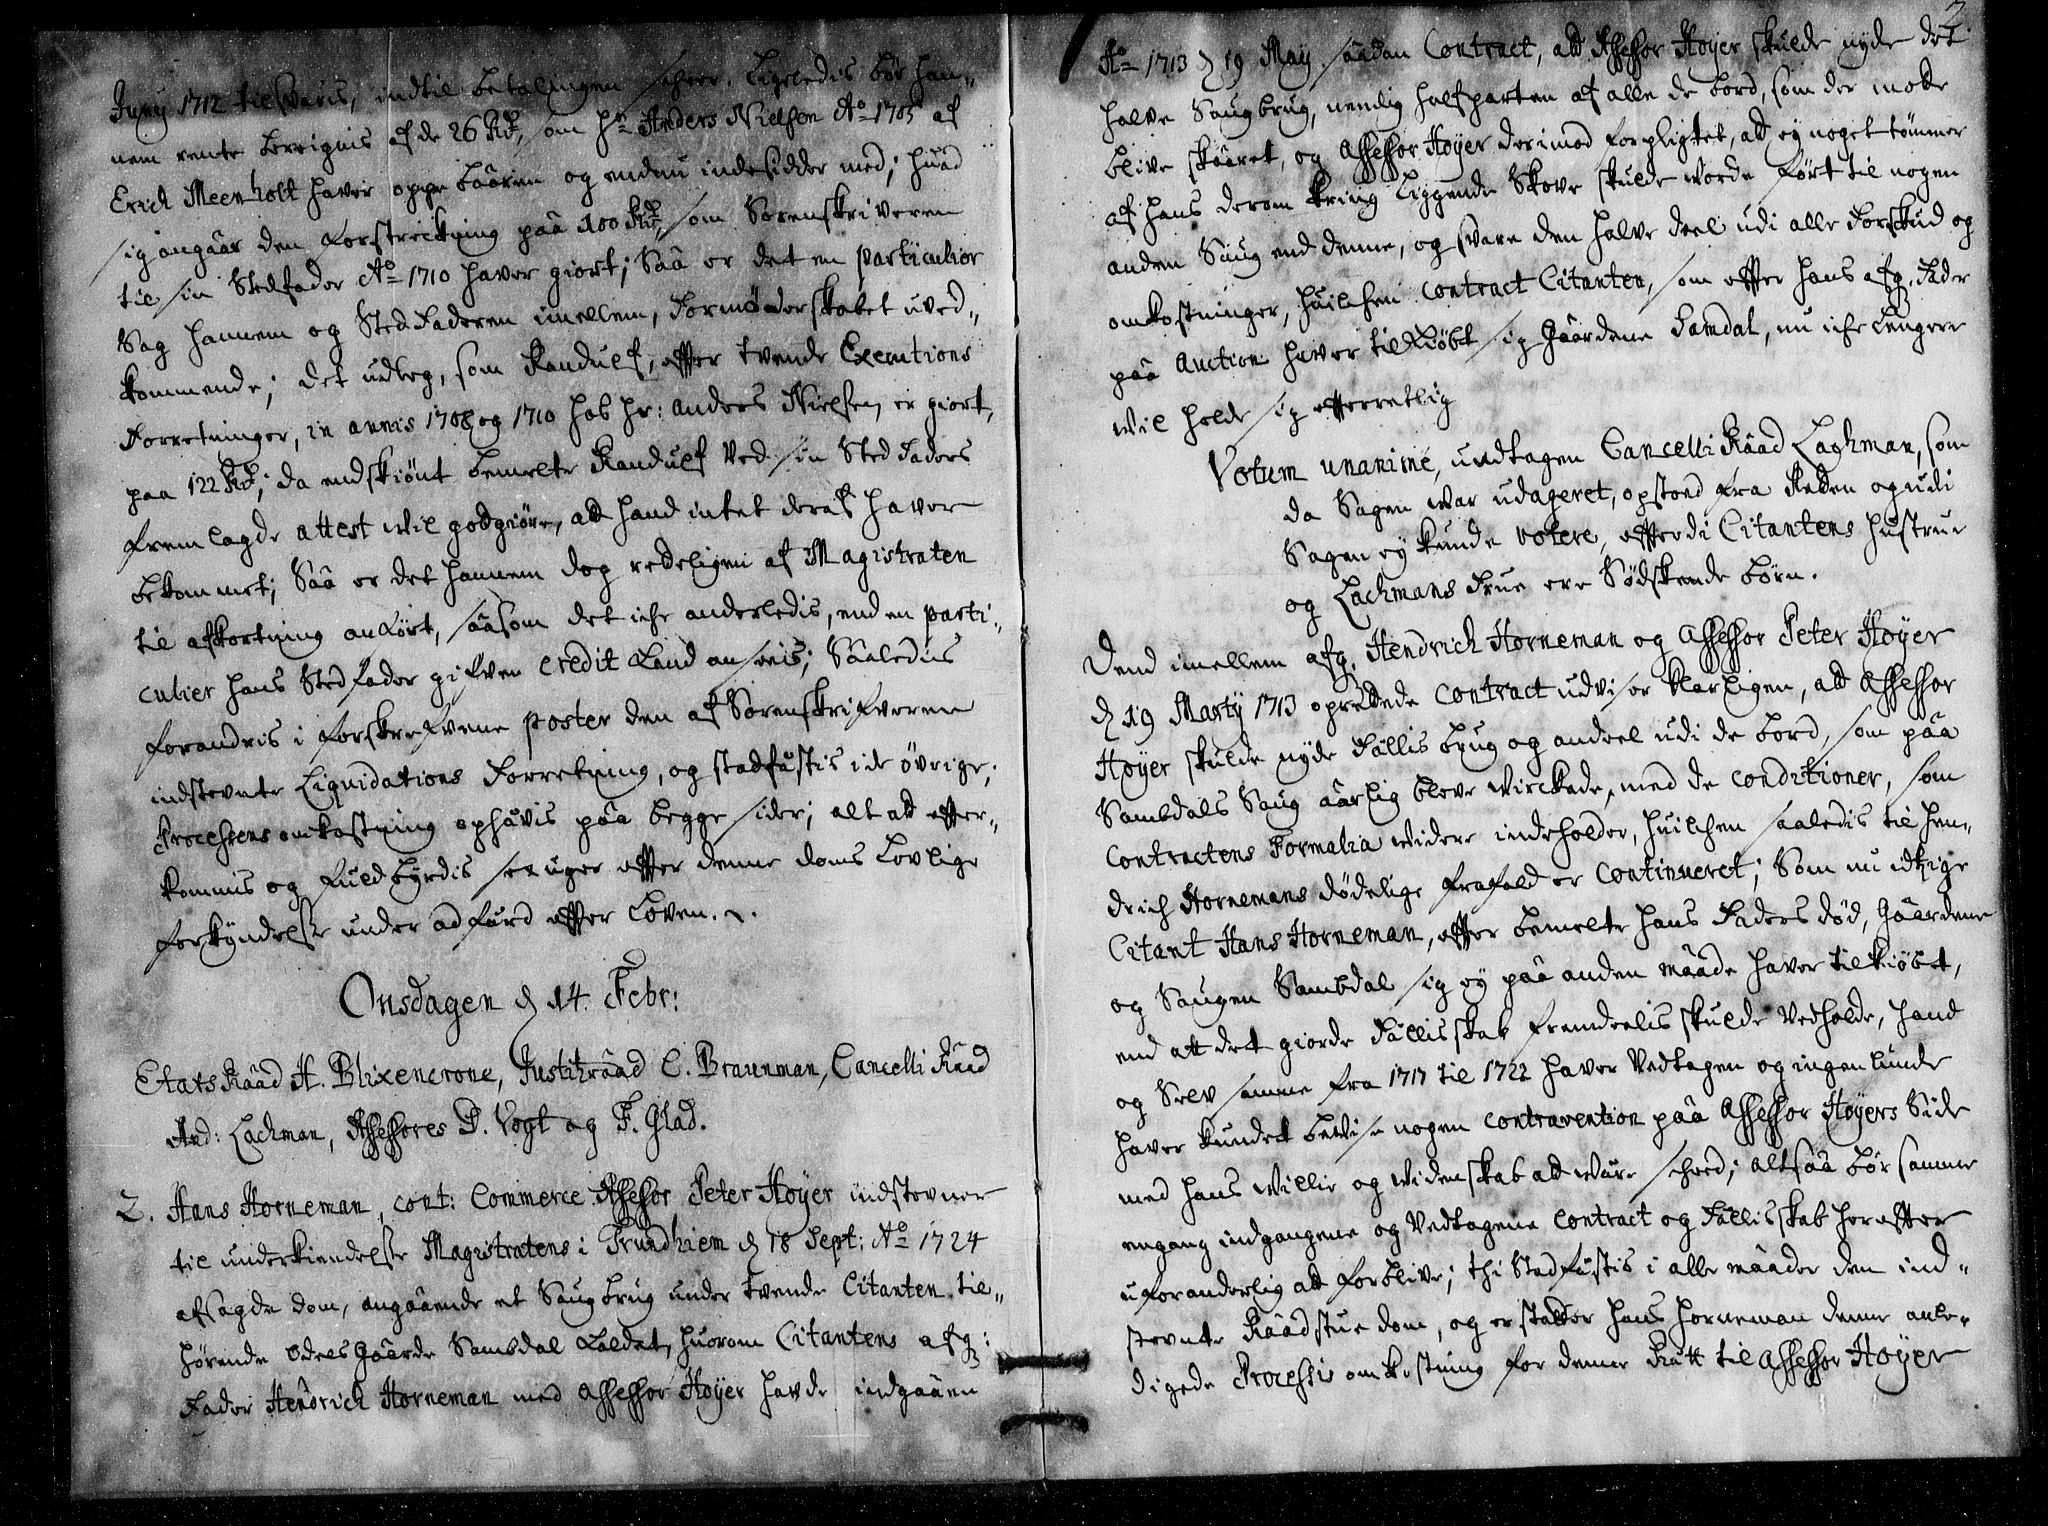 Junij 1712 tilsvaris, indtil betalingen scheer. Ligeledis bør han-
nem rente berignis af de 26 Rdr, som hr Anders Nielsen Ao 1705 af
Erich Meenholt haver oppebaaren og endnu indesidder med; hvad
sig angaar den forstrechning paa 100 Rdr, som Sorenskriveren
til sin Stedfader Ao 1710 haver giort; Saa er det en particulier
Sag hannem og Sted Faderen imellem, Formønderskabet uved-
kommende; det udleg, som Randulf, efter tvende Executions
Forretninger, in annis 1708 og 1710 hos hr: Anders Nielsen, er giort,
paa 122 Rdr; da endskiønt bemelte Randulf ved sin Sted Faders
fremlagde attest vil godgiøre, att hand intet deraf haver
bekommet; Saa er det hannem dog redeligen af Magistraten
til afkortning anført, saasom det iche anderledis, end en parti-
culier hans Stedfader gifven Credit kand ansees; Saaledis
forandris i forskrefvene poster den af Sorenskrifveren
indstevnte Liquidations Forretning, og stadfæstis i de øvrige;
Processens omkostning ophævis paa begge sider; alt att efter-
kommis og fuldbyrdis sex uger efter denne doms Lovlige
forkyndelse under adfærd efter Loven.
Onsdagen d 14. Febr:
Etats Raad H. Blixencrone, Justitzraad C. Braunman, Cancelli Raad
And: Lachman, Assessores P. Vogt og F. Glad.
2. Hans Horneman, cont: Commerce Assessor Peter Høyer indstevner
til underkiendelse Magistratens i Trundhiem d 18 Sept: Ao 1724
afsagde dom, angaaende et Saugbrug under tvende Citanten til-
hørende Odels Gaarde Sambdal kaldet, huorom Citantens afg:
Fader Hendrich Horneman med Assessor Høyer havde indgaaen
2
Ao 1713 d 19 May saadan Contract, att Assessor Høyer skulde nyde det
halve Saugbrug, nemlig halfparten af alle de bord, som der motte
blive skaaret, og Assessor Høyer derimod forpligtet, att ey noget tømmer
af hans derom kring liggende Skove skulde worde ført til nogen
anden Saug end denne, og svare den halve deel udi alle Forskud og
omkostninger, huilchen Contract Citanten, som efter hans afg. Fader
paa Auction haver tilkiøbt sig Gaardene Samdal, nu iche lengere
wil holde sig efterretlig
Votum unanime, undtagen Cancelli Raad Lachman, som
da Sagen war udageret, opstoed fra Retten og udi
Sagen ey kunde votere, efterdi Citantens Hustrue
og Lachmans Frue ere Sødskende børn.
Dend imellem afg. Hendrich Horneman og Assessor Peter Høyer
d 19 Martij 1713 oprettede Contract udviser klarligen, att Assessor
Høyer skulde nyde Fællis brug og andeel udi de bord, som paa
Sambdals Saug aarlig bleve virckede, med de Conditioner, som
Contractens Formalia widere indeholder, huilchen saaledis til Hen-
drich Hornemans dødelige frafald er Continueret; Som nu itzige
Citant Hans Horneman, efter bemelte hans Faders død, Gaardene
og Saugen Sambdal sig ey paa anden maade haver tilkiøbt,
end att det giorde Fællisskab fremdeelis skulde vedholde, hand
og Selv samme fra 1717 til 1722 haver vedtagen og ingenlunde
haver kundet bevise nogen Contravention paa Assessor Høyers Side
med hans Villie og Widenskab att være skeed; altsaa bør samme
engang indgangene og vedtagene Contract og Fællisskab herefter
uforanderlig att forblive; thi Stadfæstis i alle maader den ind-
stevnte Raadstue dom, og erstatter Hans Horneman denne anle-
digede Processis omkostning for denne Rætt til Assessor Høyer